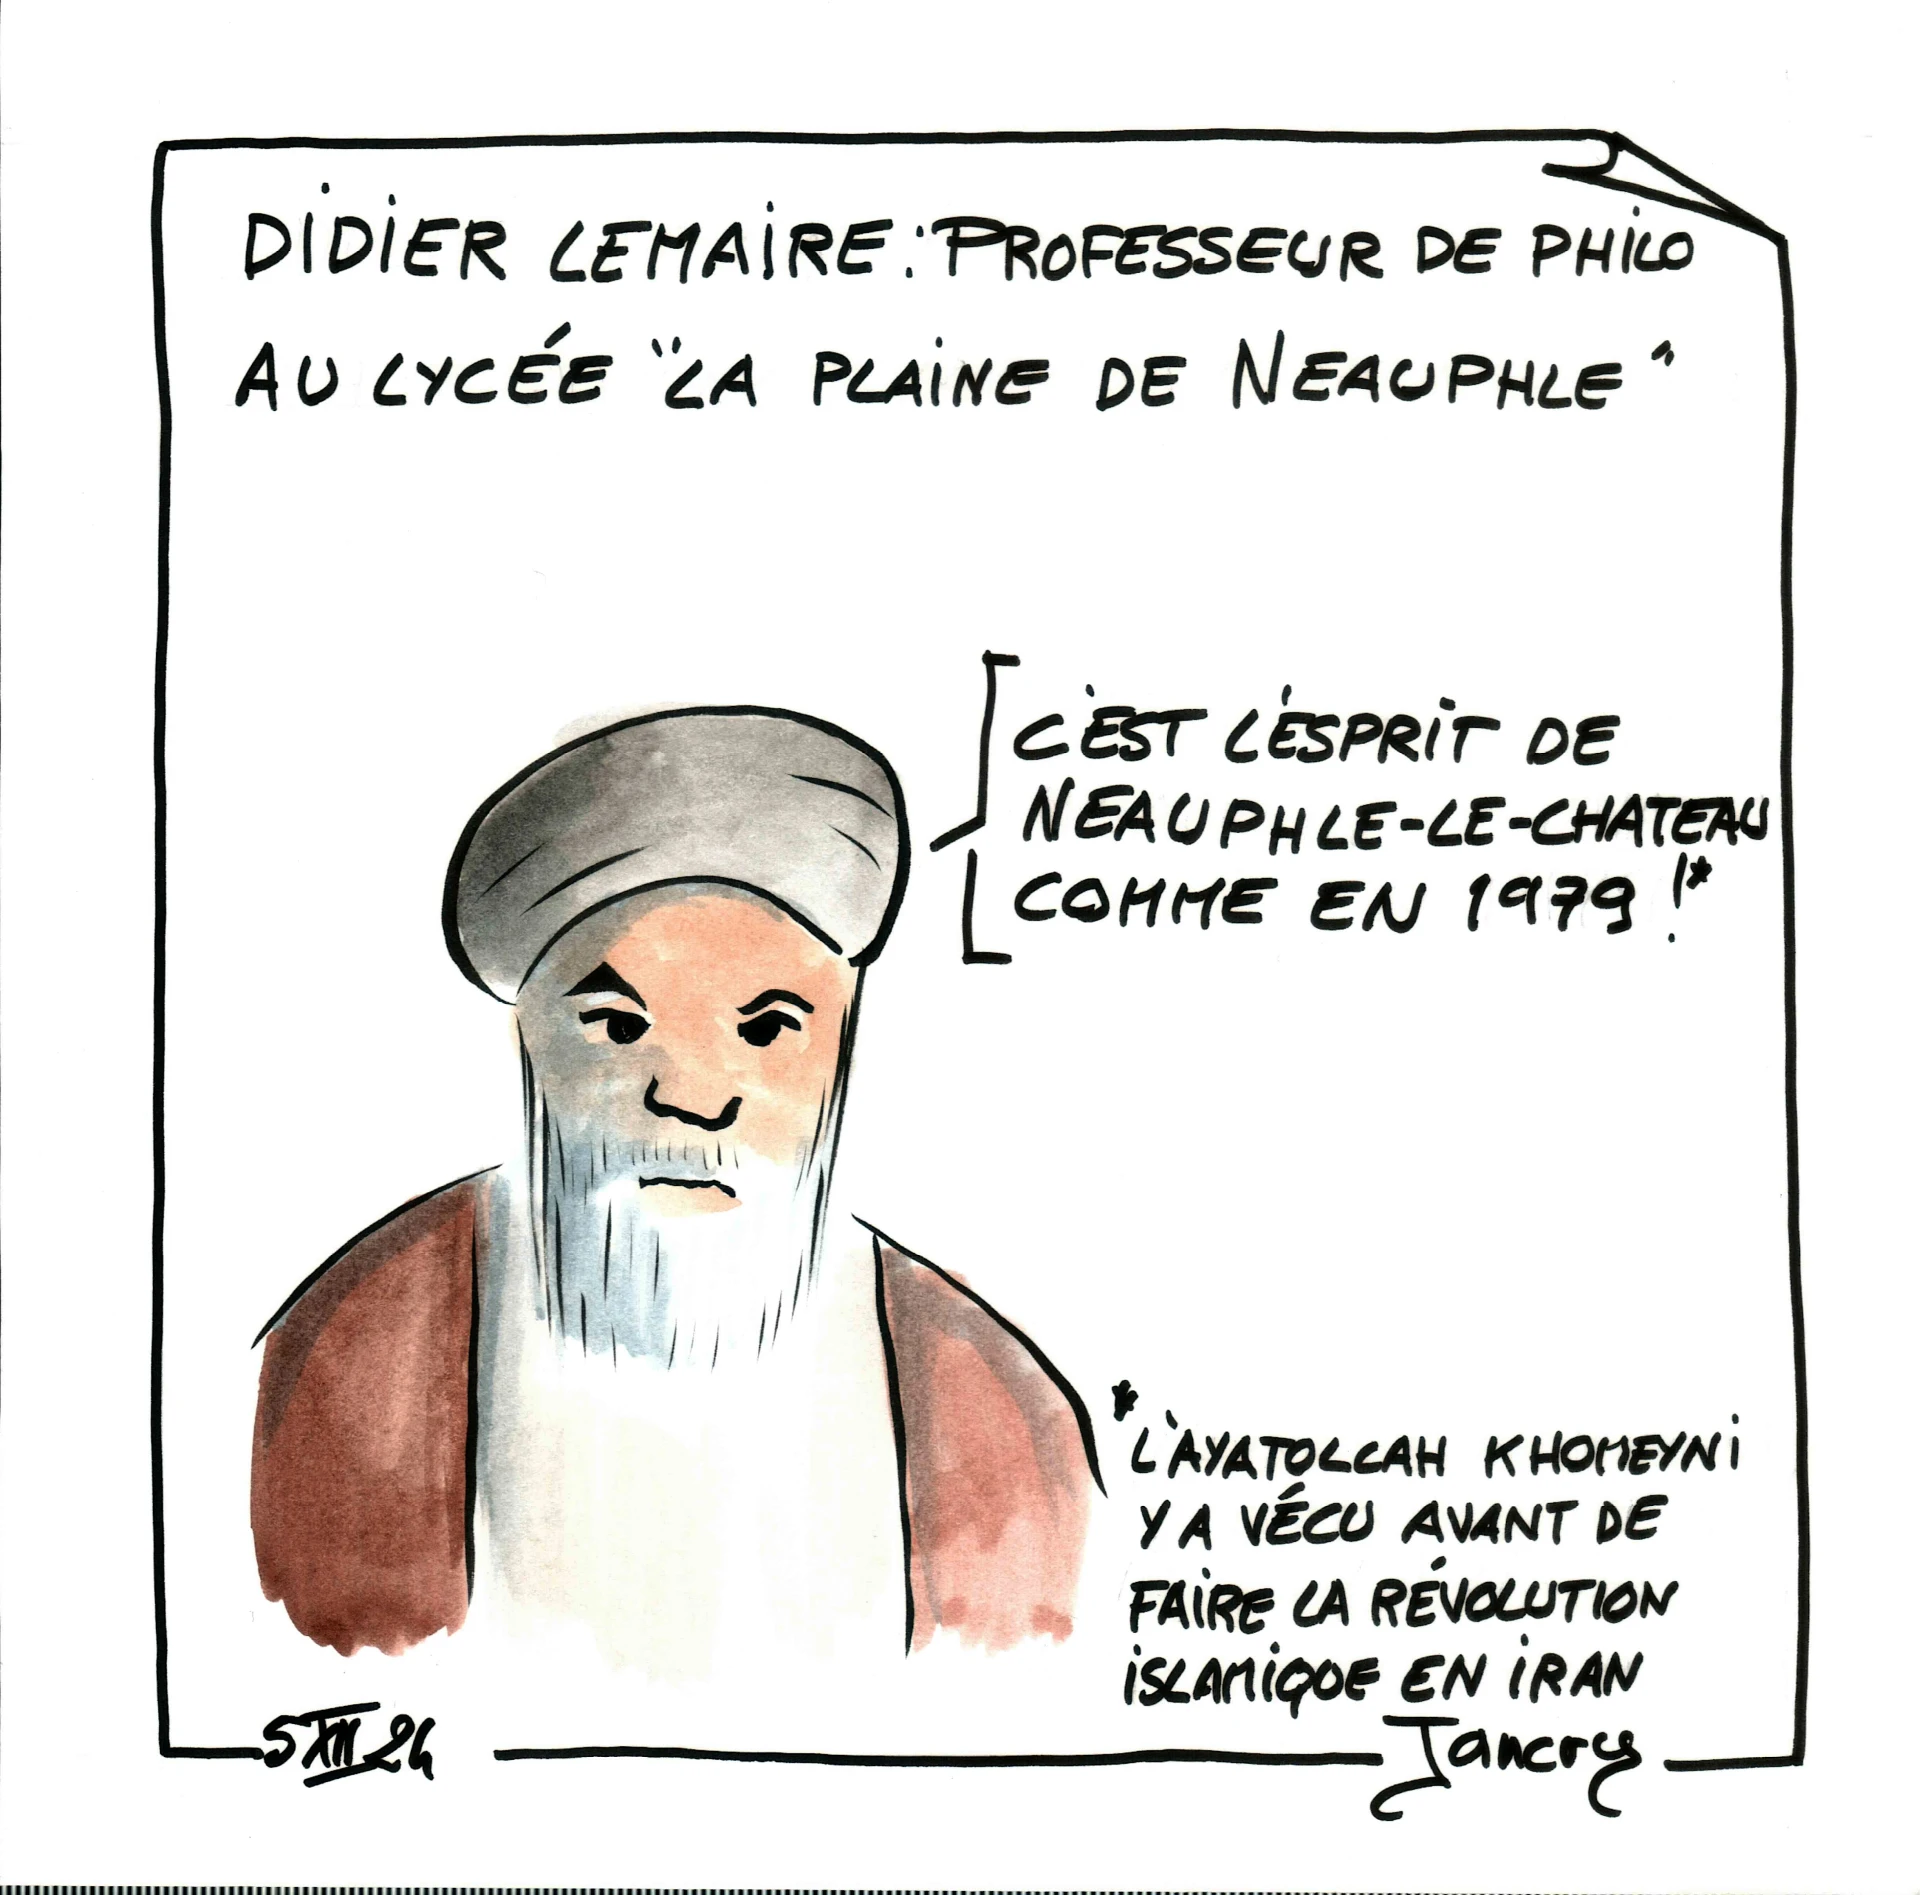 DIDIER LEMAIRE : PROFESSEUR DE PHILO
AU LYCÉE "LA PLAINE DE NEAUPHLE"
C'EST L'ESPRIT DE
NEAUPHLE-LE-CHATEAU
COMME EN 1979 !*
*
L'AYATOLLAH KHOMEYNI
Y A VÉCU AVANT DE
FAIRE LA RÉVOLUTION
ISLAMIQUE EN IRAN
5 XII 24
Jancry